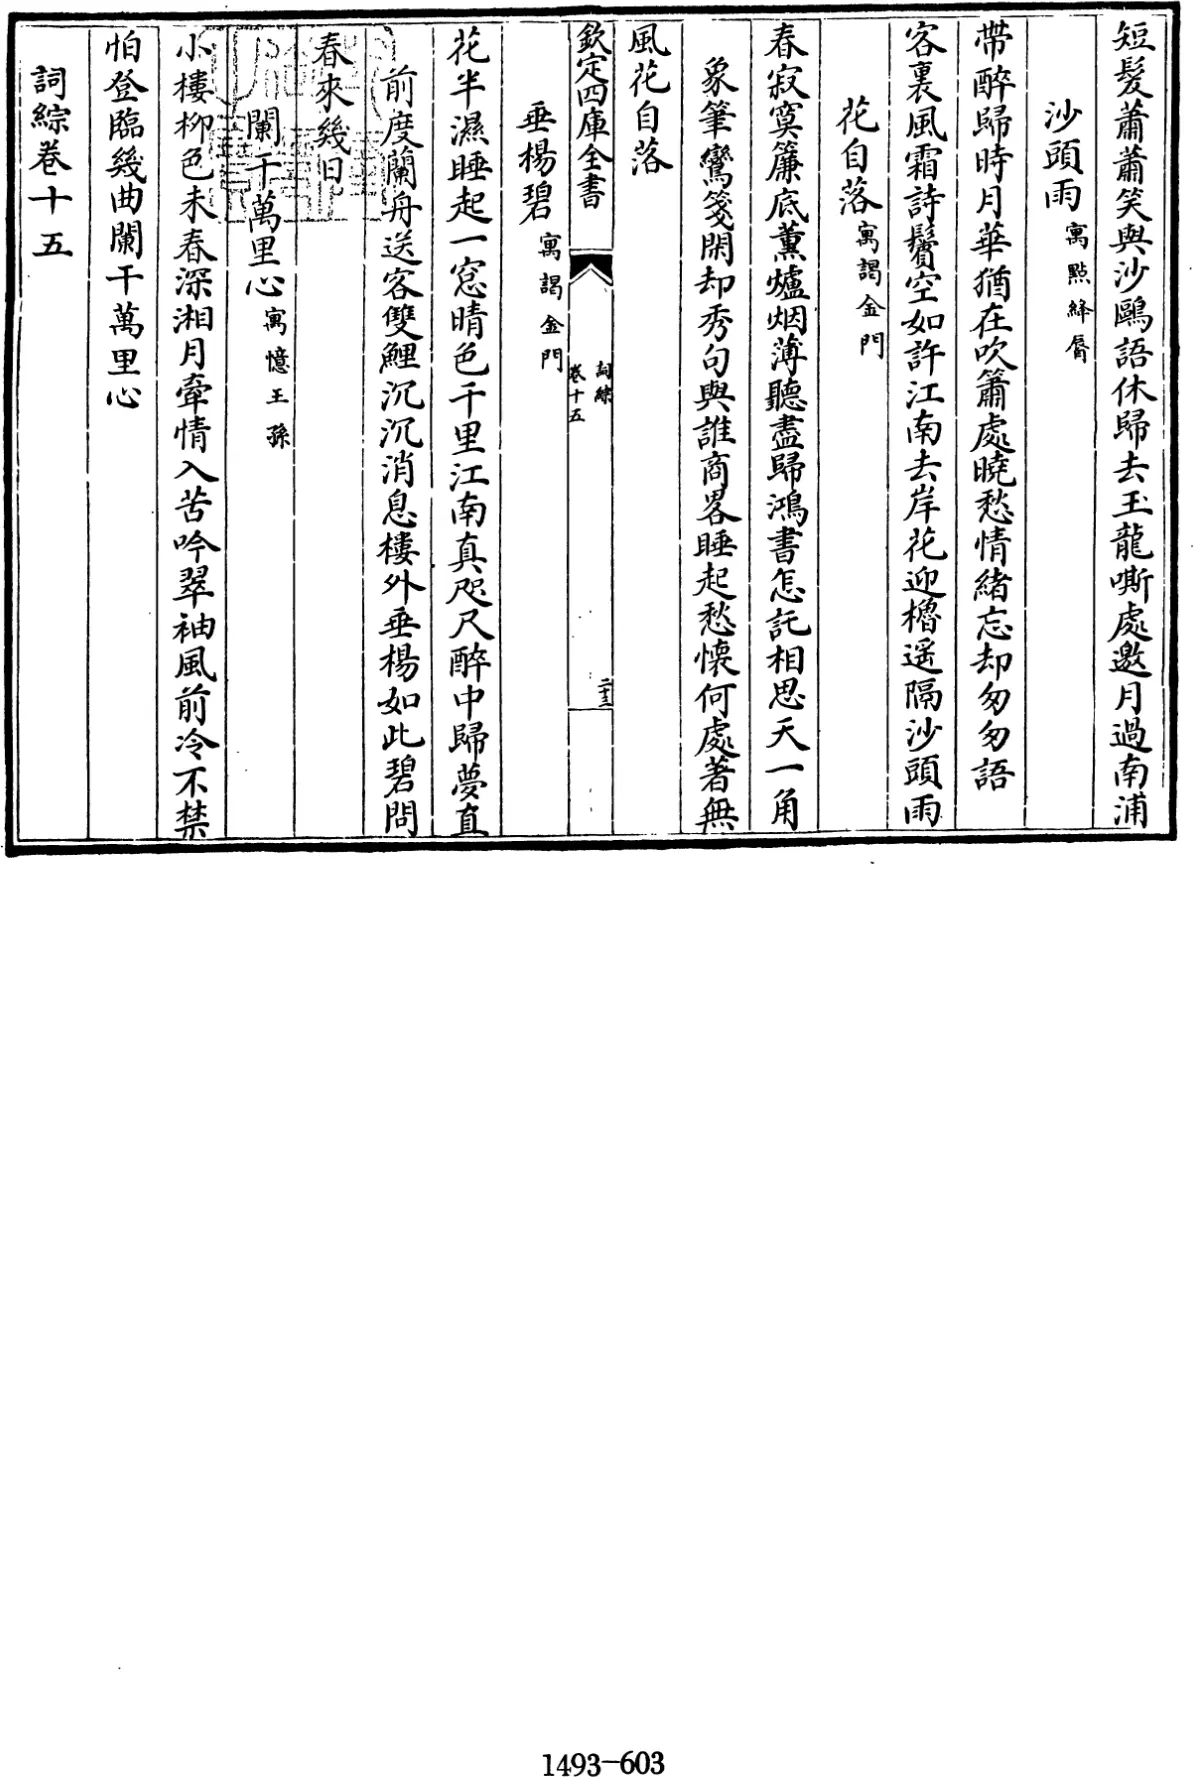 短髮蕭蕭笑與沙鷗語休歸去玉龍嘶處邀月過南浦
沙頭雨寓點絳脣
帶醉歸時月華猶在吹簫處曉愁情緒忘却匆匆語
客裏風霜詩鬢空如許江南去岸花迎櫓遥隔沙頭雨
花自落寓謁金門
春寂寞簾底薰爐烟薄聽盡歸鴻書怎託相思天一角
象筆鸞箋閑却秀句與誰商畧睡起愁懷何處著無
風花自落
欽定四庫全書
詞綜
卷十五
垂楊碧寓謁金門
花半濕睡起一窓晴色千里江南真咫尺醉中歸夢直
前度蘭舟送客雙鯉沉沉消息樓外垂楊如此碧問
春來幾日
闌干萬里心寓憶王孫
小樓柳色未春深湘月牽情入苦吟翠袖風前冷不禁
怕登臨幾曲闌干萬里心
詞綜卷十五
1493-603